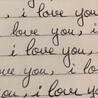 , i love you
love you, i
, i love you
ove you, i
, i love you
you, i love